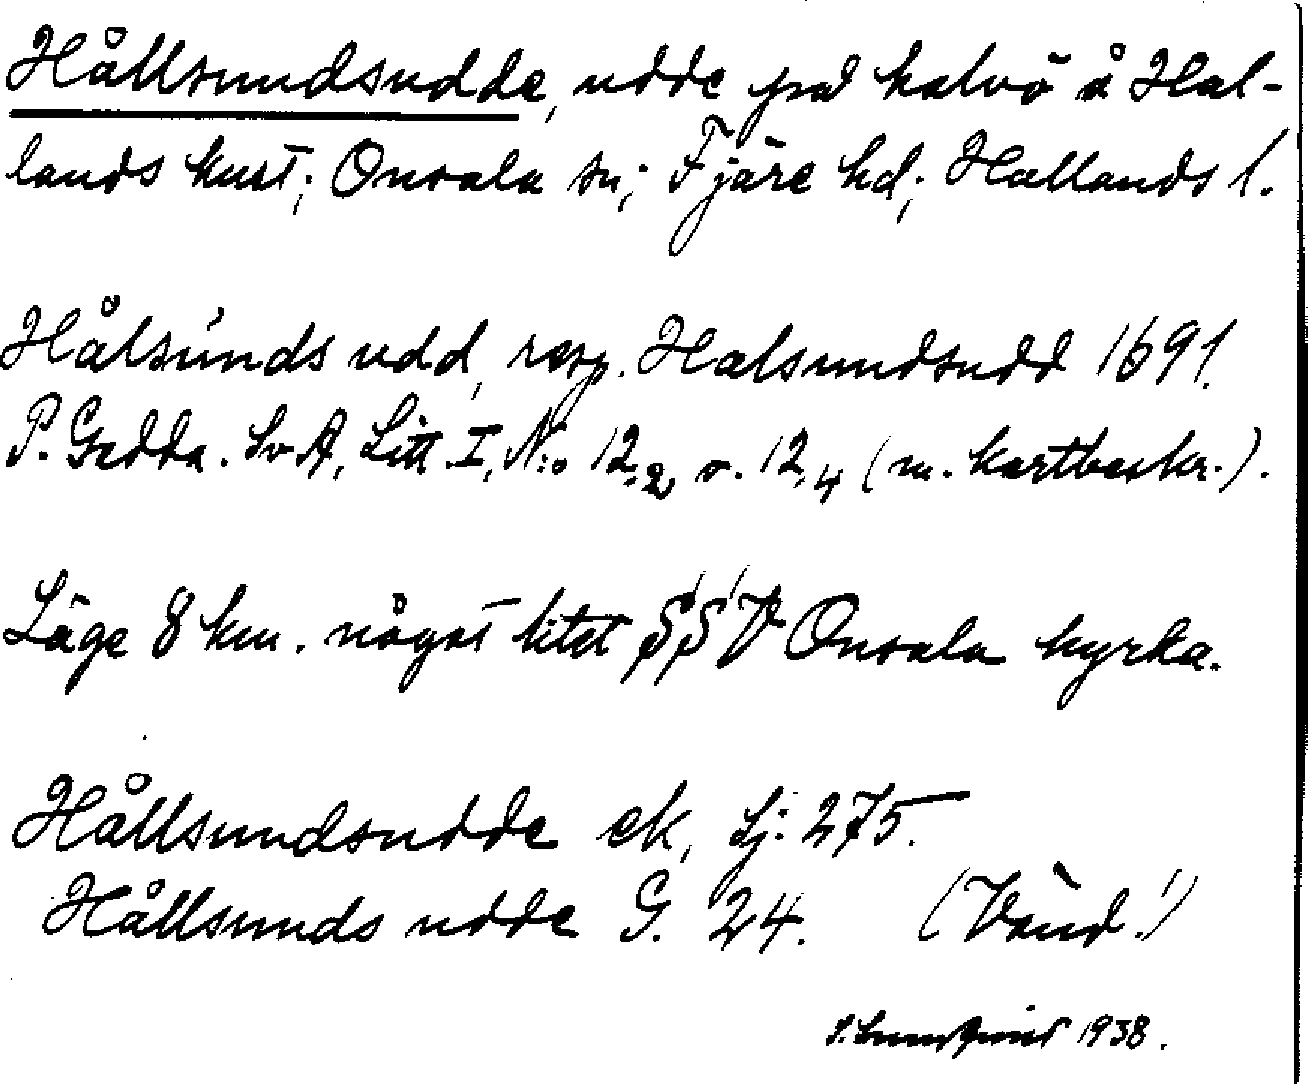 Hållsundsudde, udde på halvö å Hal-
lands kust; Onsala sn; Fjäre hd; Hallands l.
Hålsúnds udd, resp. Halsundsudd 1691.
P. Gedda. Sv A, Litt. I, N:o 12,2 o. 12,4 (m. kartbeskr.).
Läge 8 km. något litet SSV Onsala kyrka.
Hållsundsudde ek, Sj: 275.
Hållsunds udde G. 24. (Vänd!)
1938.